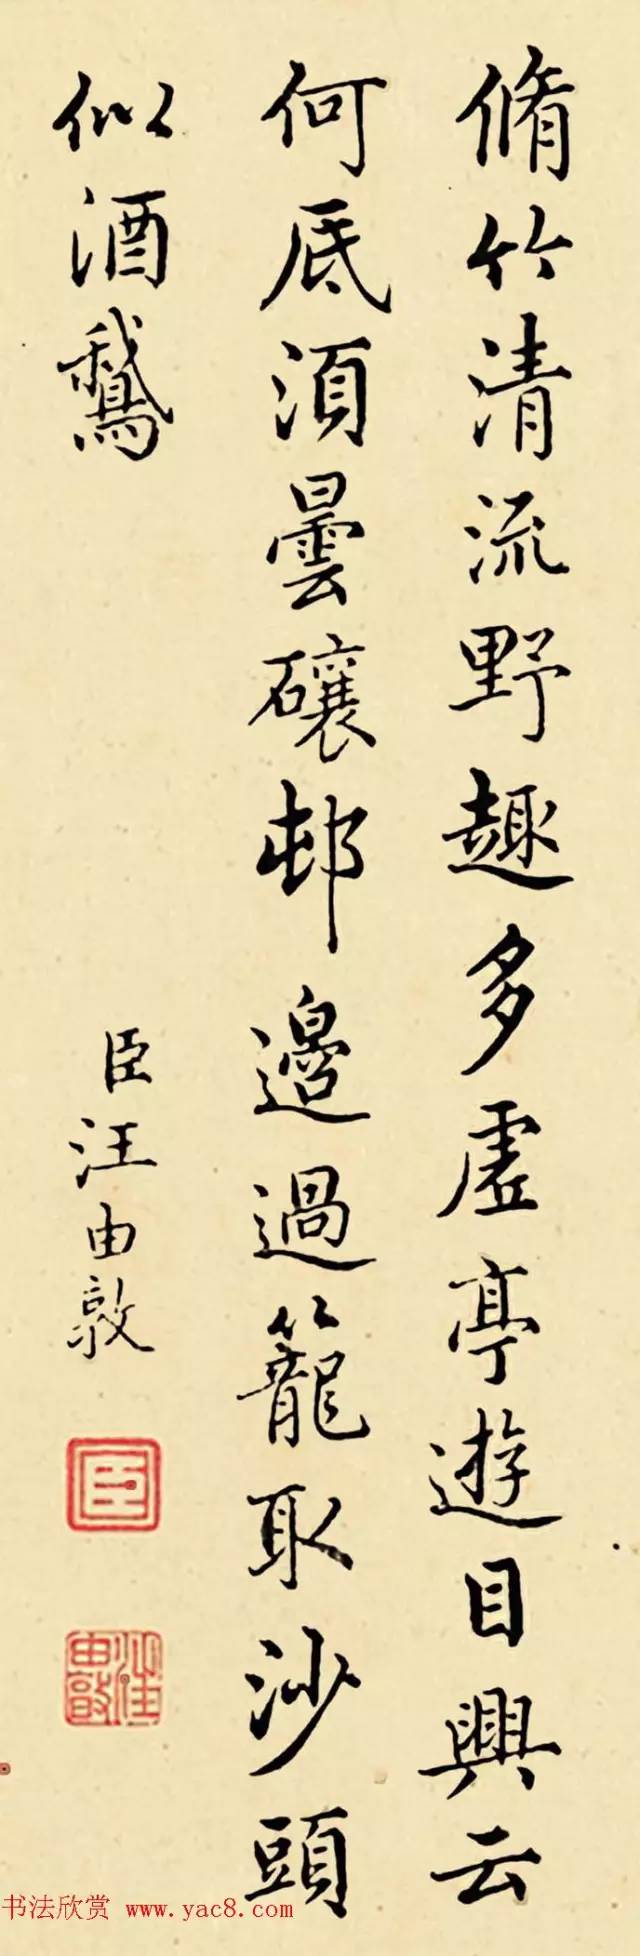 脩竹清流野趣多虛亭遊目興云
何底須曇礹邨邊過籠取沙頭
似酒鵞
臣汪由敦
臣
汪由敦
书法欣赏 www.yac8.com